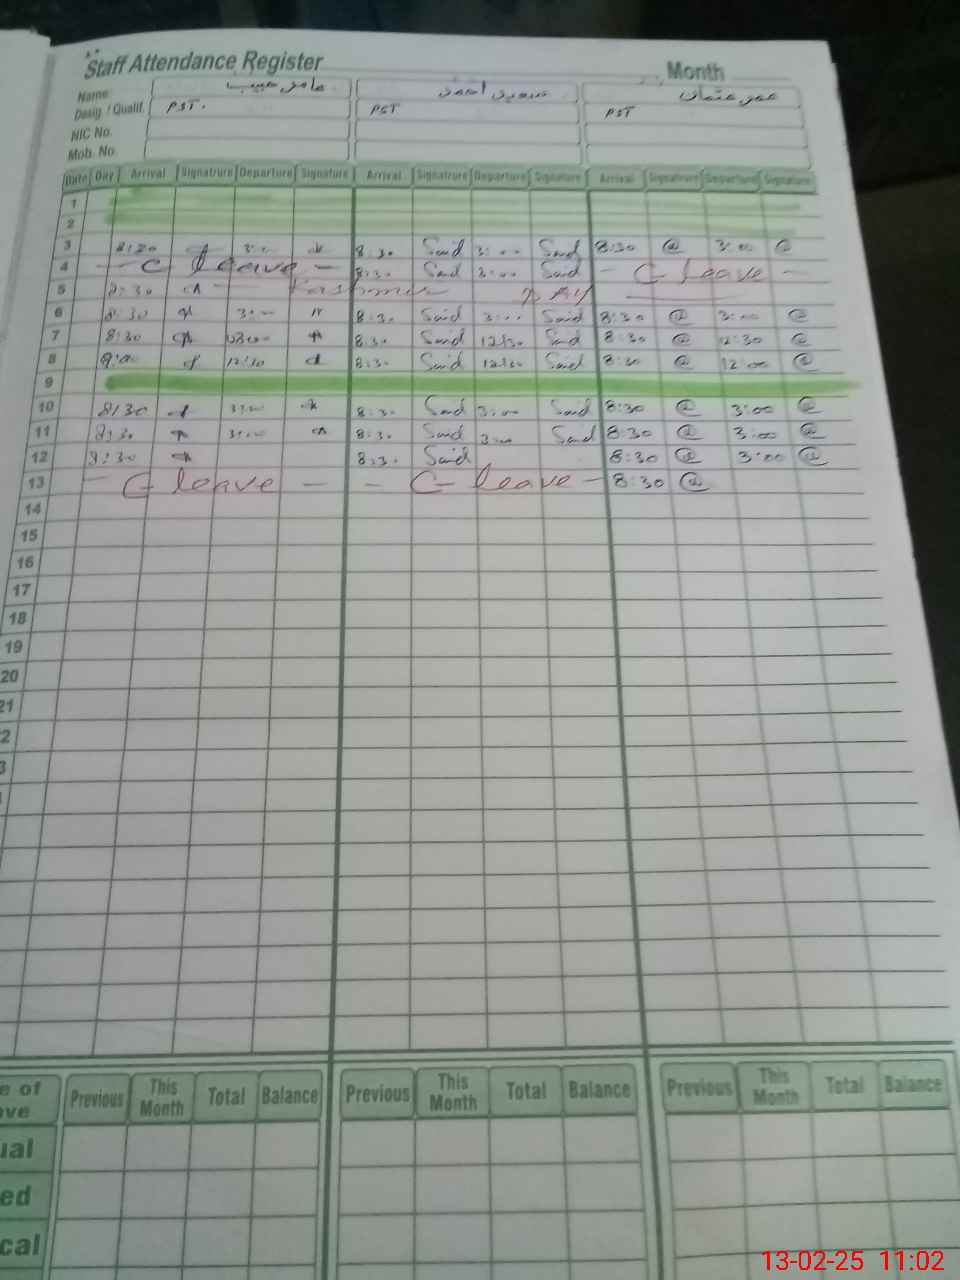 Staff Attendance Register Month
Name عامر حبیب سعید احمد عمر عثمان
Desig. / Qualif. PST. PST PST
NIC No.
Mob. No.
Date Day Arrival Signatrure Departure Signature Arrival Signatrure Departure Signature Arrival Signatrure Departure Signature
1
2
3 8:30 3:00 8:30 Said 3:00 Said 8:30 @ 3:00 @
4 - C leave - 8:30 Said 3:00 Said - C leave -
5 8:30
6 8:30 3:00 8:30 Said 3:00 Said 8:30 @ 3:00 @
7 8:30 8:30 Said 12:30 Said 8:30 @ 12:30 @
8 9:00 12:30 8:30 Said 12:30 Said 8:30 @ 12:00 @
9
10 8:30 3:00 8:30 Said 3:00 Said 8:30 @ 3:00 @
11 8:30 3:00 8:30 Said 3:00 Said 8:30 @ 3:00 @
12 8:30 8:30 Said 8:30 @ 3:00 @
13 - C leave - - C leave - 8:30 @
14
15
16
17
18
19
20
21
2
3
e of Previous This Month Total Balance Previous This Month Total Balance Previous This Month Total Balance
ve
ual
ed
cal
13-02-25 11:02